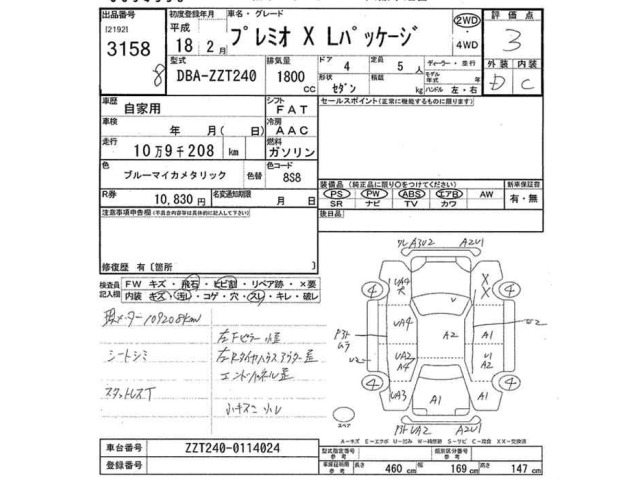 出品番号 初度登録年月 車名・グレード 評価点
[2192] 平成 プレミオ X Lパッケージ 2WD 3
3158 18年 2月 ・ 4WD
8 型式 排気量 ドア 4 定員 5人 ディーラー・並行 外装 内装
DBA-ZZT240 1800cc 形状 セダン 積載 kg モデル年式 ハンドル 左・右 D C
車歴 自家用 シフト FAT セールスポイント(正常に機能するものに限ります)
車検 年 月( 日) 冷房 AAC
走行 10万9千208 km 燃料 ガソリン
色 ブルーマイカメタリック 色替 色コード 8S8
装備品(純正品に限り○をつけてください) 新車保証書
R券 10,830円 名変通知期限 月 日 PS・PW・ABS・エアB・AW 有・無
SR ナビ TV カワ
注意事項申告欄(不具合内容等は具体的に記入して下さい) 後日品
修復歴 有〔箇所 〕
検査員 FW キズ・飛石・ヒビ割・リペア跡・×要
記入欄 内装 キズ・汚レ・コゲ・穴・スレ・キレ・破レ
現メーター109208km
シートシミ
スタットレスT
左Fピラー小歪
左Rタイヤハウスアウター歪
エンドパネル歪
小キズ 小凹
A3U2 A2U1
④ UA4 X X ④
UA4 A2 A1 U2
ムラ
U2 UA2 A4 U1 A2
④ UA3 A1 A1 ④
UA2 A2U1
スペア
A−キズ E−エクボ U−凹み W−補修跡 S−サビ C−腐食 XX−交換済
車台番号 ZZT240-0114024 型式指定番号 参考 類別区分番号 参考
登録番号 車庫証明用 参考 長さ 460cm 幅 169cm 高さ 147cm